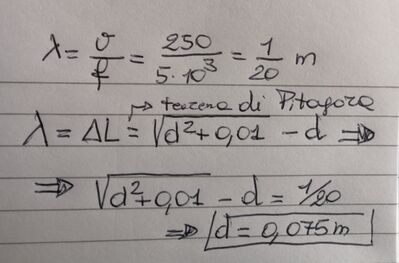 λ = v/f = 250/5·10³ = 1/20 m
↱ teorema di Pitagora
λ = ΔL = √d²+0,01 - d ⇒
⇒ √d²+0,01 - d = 1/20
⇒ d = 0,075 m